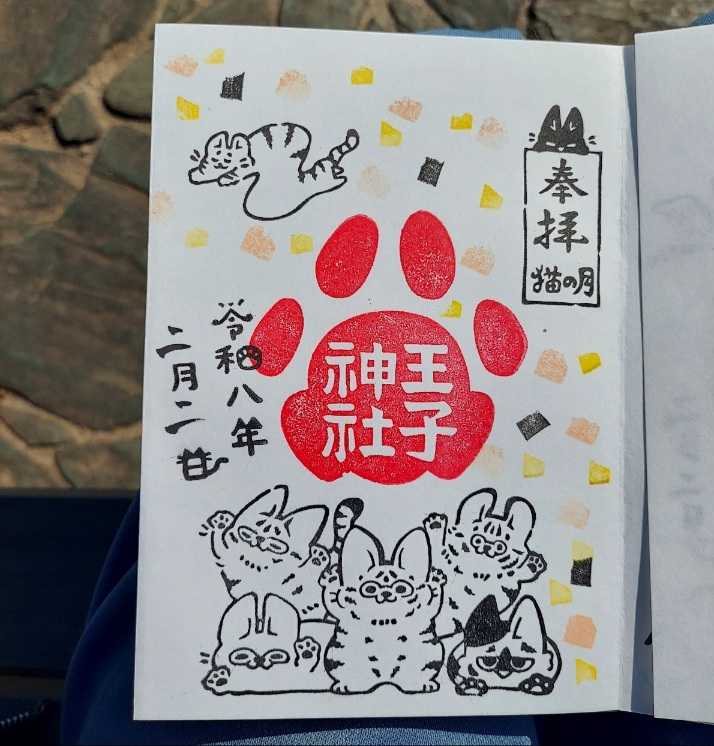 奉拝
猫の月
王子
神社
令和八年
二月二